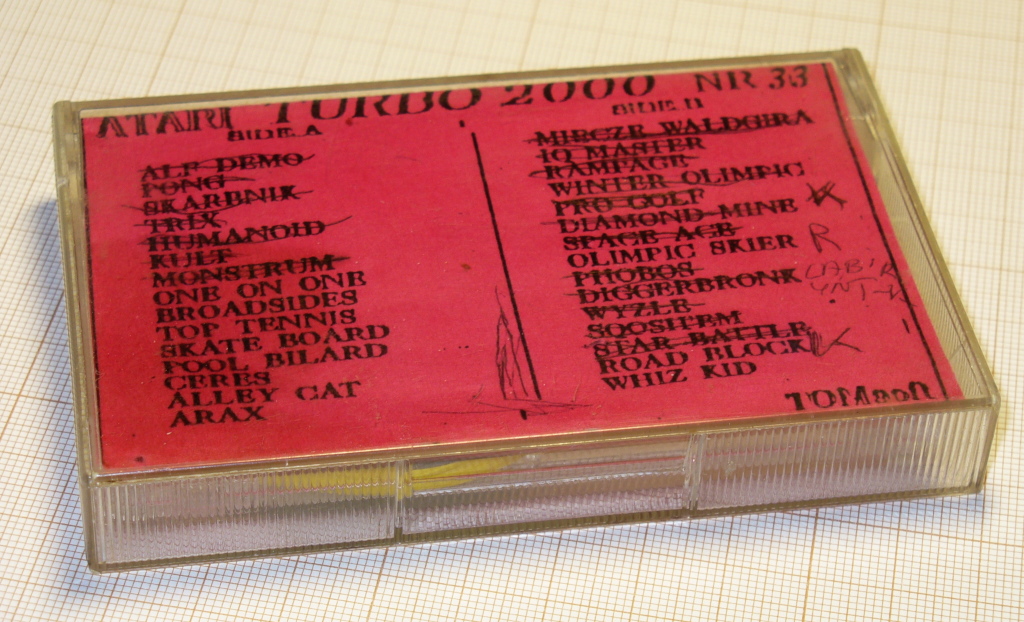 ATARI TURBO 2000 NR 33
SIDE A
ALF DEMO
PONG
SKARBNIK
TRIX
HUMANOID
KULT
MONSTRUM
ONE ON ONE
BROADSIDES
TOP TENNIS
SKATE BOARD
POOL BILARD
CERES
ALLEY CAT
ARAX
SIDE B
MIECZE WALDGIRA
IQ MASTER
RAMPAGE
WINTER OLIMPIC
PRO GOLF
DIAMOND MINE K
SPACE ACE
OLIMPIC SKIER R
PHOBOS
DIGGERBRONK LABIR
YNT
WYZLE
SQOSITEM
STAR BATTLE
ROAD BLOCK K
WHIZ KID
TOMsoft